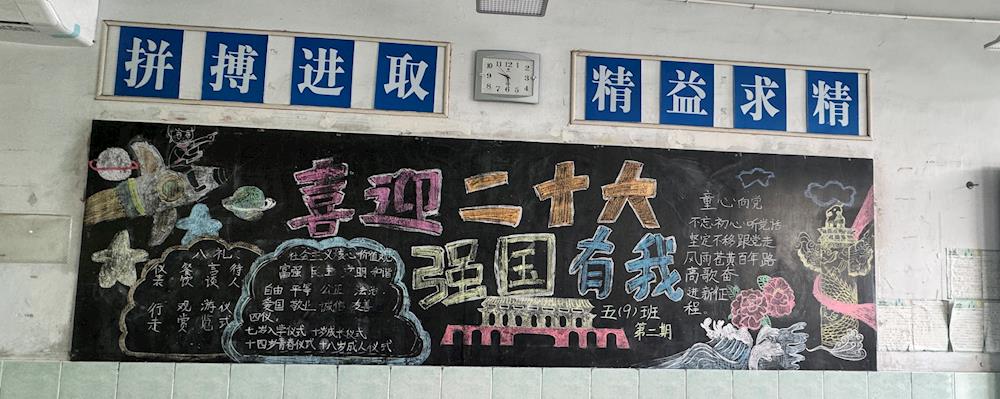 拼搏进取
精益求精
喜迎二十大
强国有我
五(9)班
第二期
八礼
仪 餐 言 待
装 饮 谈 人
行 观 游 仪
走 赏 览 式
社会主义核心价值观
富强 民主 文明 和谐
自由 平等 公正 法治
爱国 敬业 诚信 友善
四仪
七岁入学仪式 十岁成长仪式
十四岁青春仪式 十八岁成人仪式
童心向党
不忘初心听党话
坚定不移跟党走
风雨苦黄百年路
高歌奋
进新征
程。